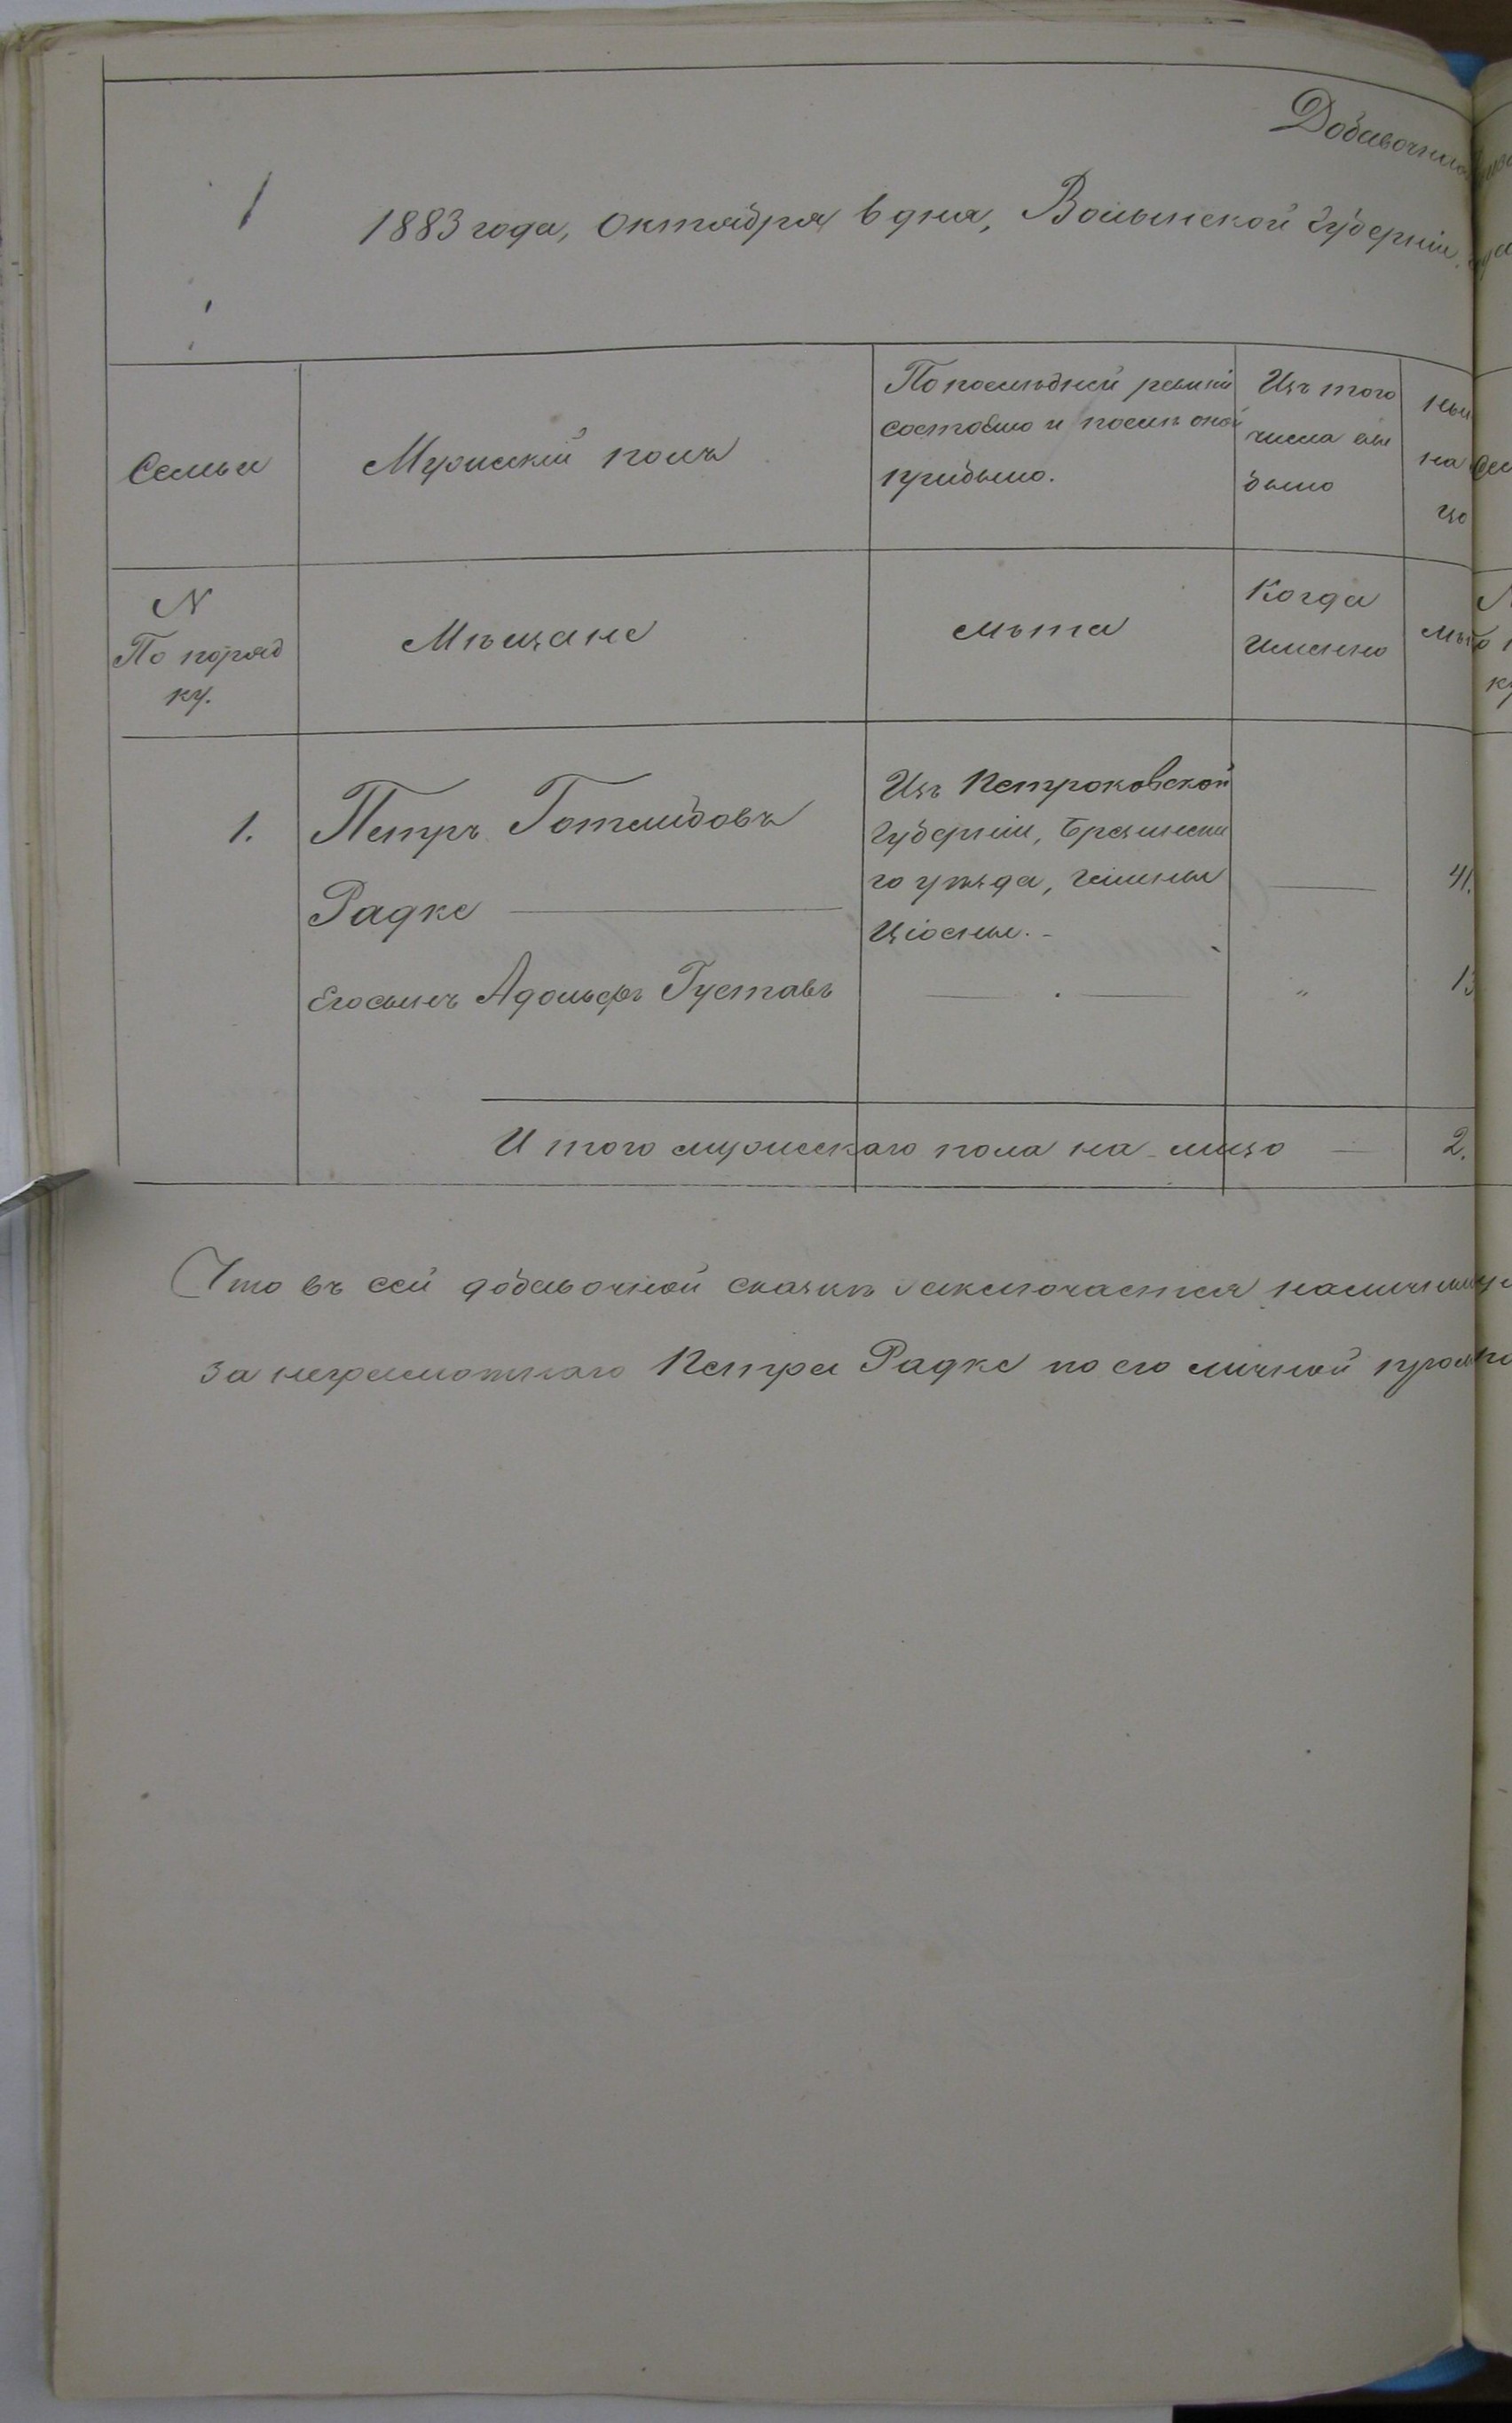 Добавочная
1883 года, Октября 6 дня, Волынской Губерніи
Семьи
Мужескій полъ
По послѣдней ревизіи
состояло и послѣ оной
прибыло.
Изъ того
числа вы
было
ны
на
цо
N
По поряд
ку.
Мѣщане
лѣта
Когда
именно
лѣт
1.
Петръ Готлибовъ
Радке
Изъ Петроковской
Губерніи, Брезинска
го уѣзда, гмины
Ціосны.
41.
Его сынъ Адольфъ Густавъ
"
13
И того мужескаго пола на лицо
2.
Что въ сей добавочной сказкѣ заключается наличных
за неграмотнаго Петра Радке по его личной прось